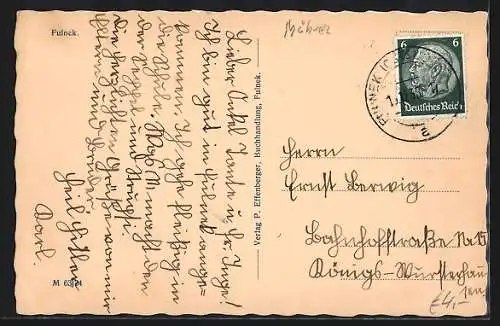 Fulnek.
Lieber Onkel Tante u.
Ich bin gut in Fulnek ange=
kommen. Ich gehe fleißig in
die Schule. macht den
der und
Die herzlichsten Grüße von mir
Eltern und Bruder.
Heil Hitler
Karl.
M 6374
Verlag P. Effenberger, Buchhandlung, Fulnek.
Mähren
6 6
Deutsches Reich
FULNEK
Herrn
Ernst Berwig
Bahnhofstraße No
Königs-Wursterhau
sen
€4,-